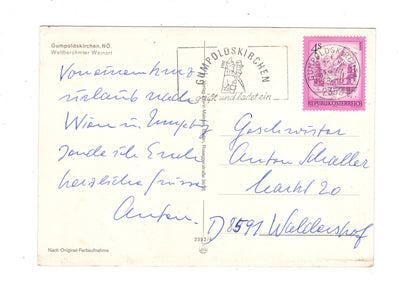 Gumpoldskirchen, NÖ.
Weltberühmter Weinort
Von einem Kurz
urlaub nach
Wien u. Umgebg
sende ich Euch
herzliche Grüsse
Anton.
Nach Original-Farbaufnahme
GUMPOLDSKIRCHEN
grüßt und ladet ein
GUMPOLDSKIRCHEN
2352
4S
REPUBLIK ÖSTERREICH
Geschwister
Anton Schaller
Markt 20
D 8591 Waldershof